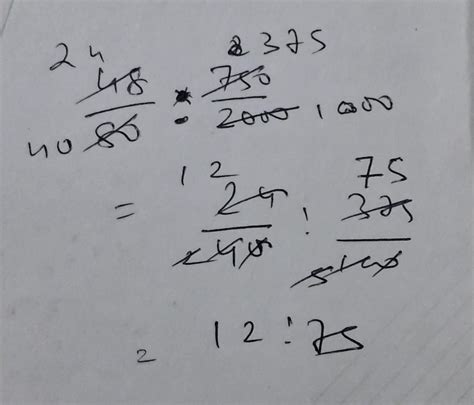 24 375
48 : 750
40 80 2000 1000
12 75
= 24 : 375
= 12 : 75